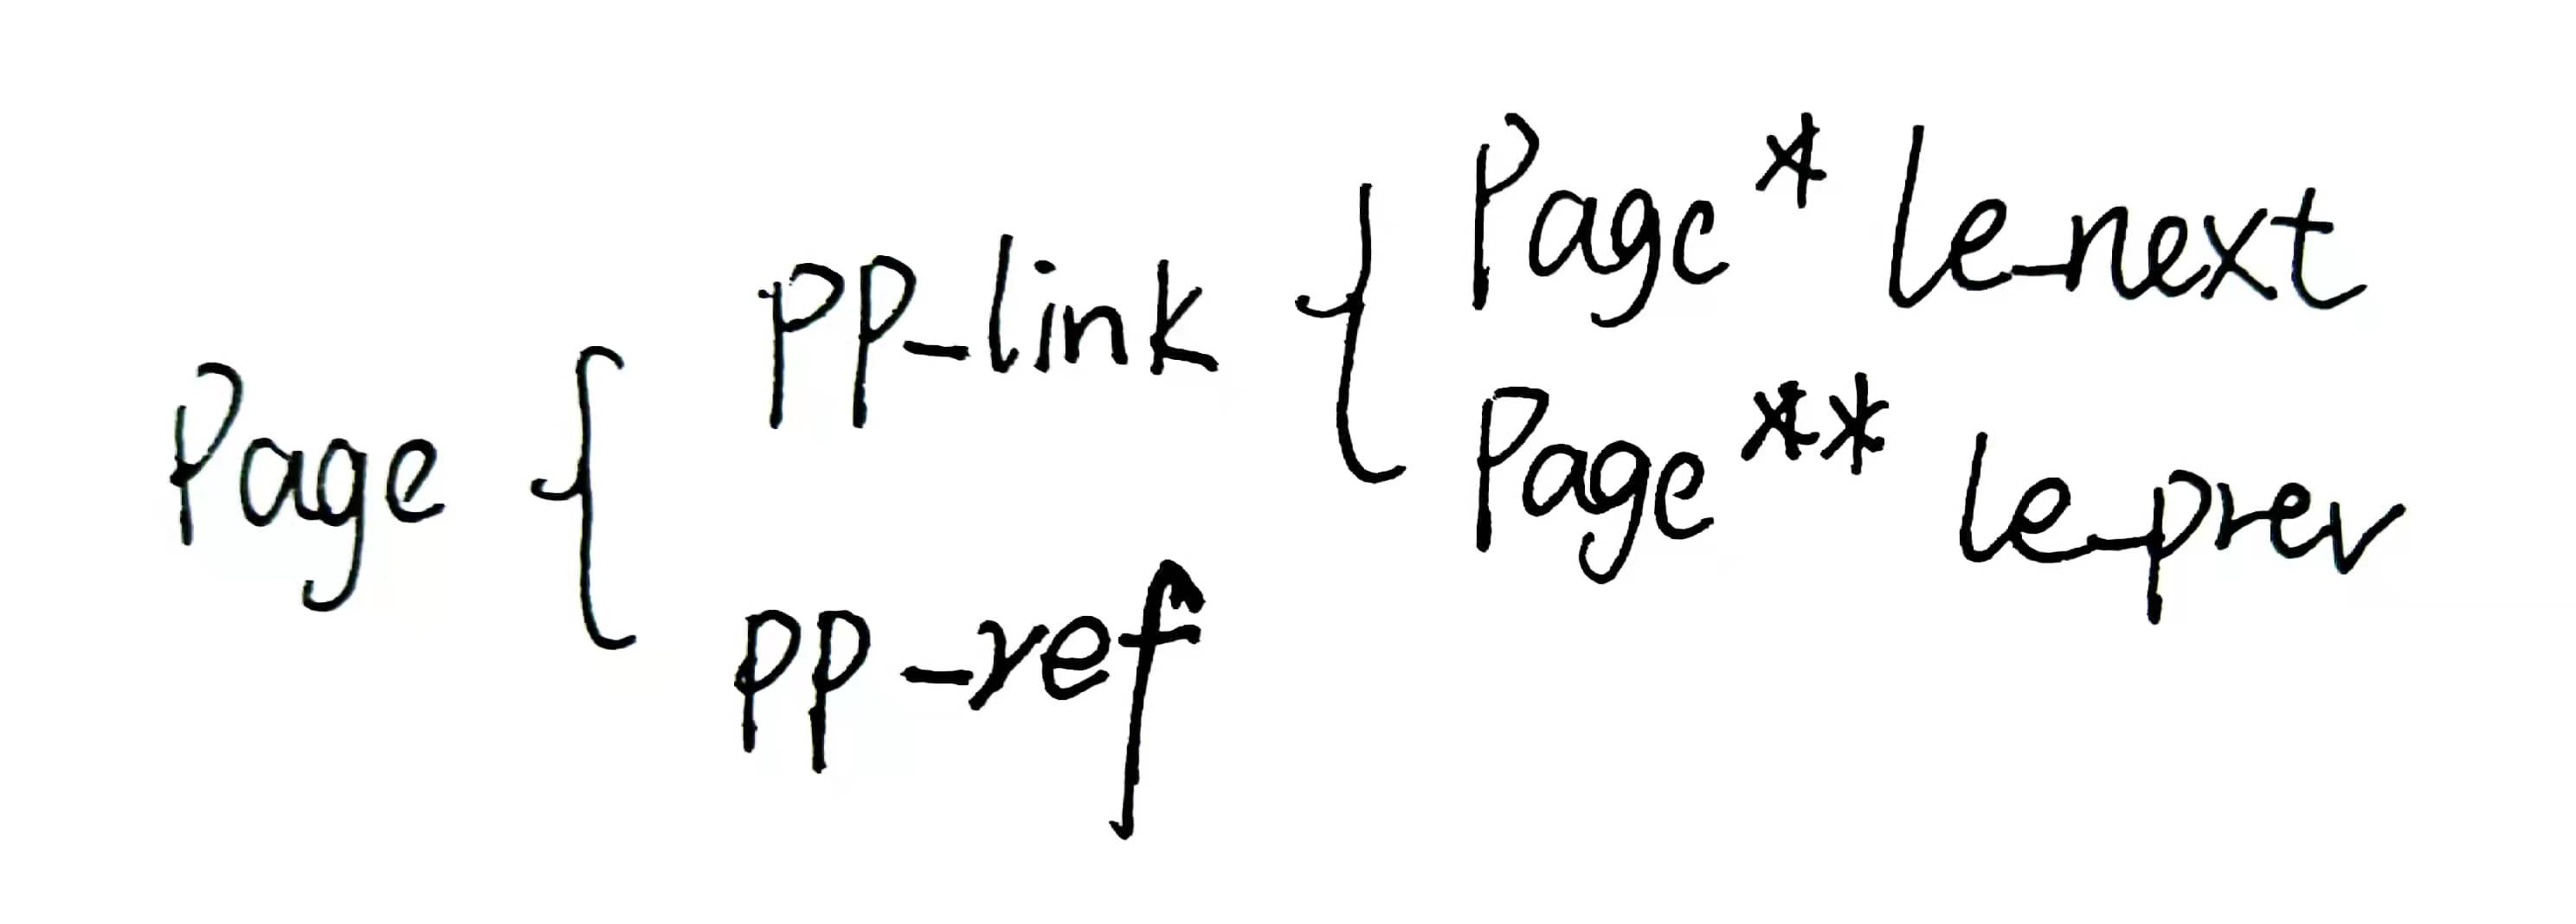 Page
pp_link
Page* le_next
Page** le_prev
pp_ref